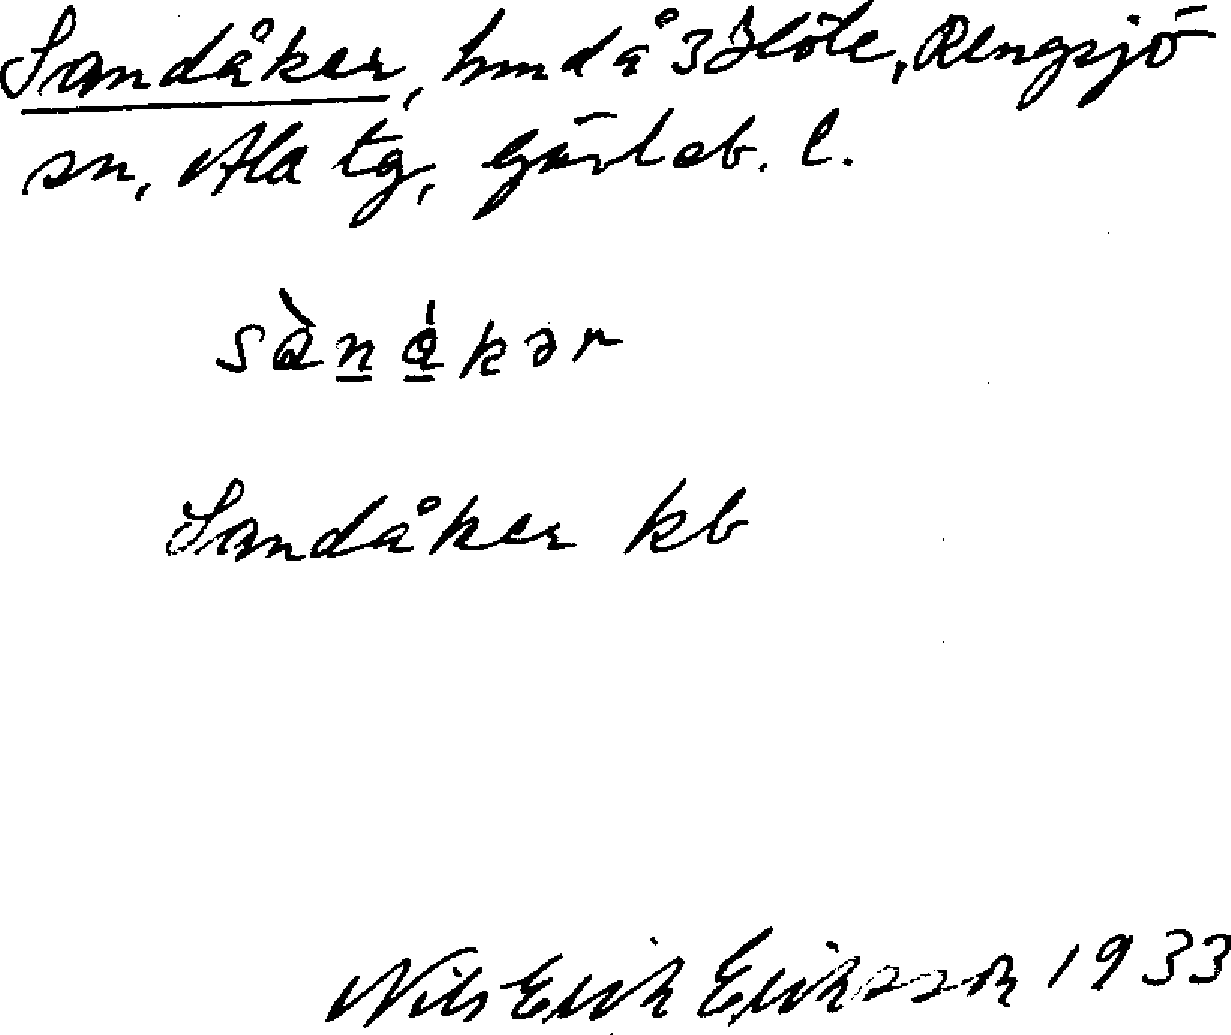 Sandåker, hmd å 3 Höle, Rengsjö
sn, Ala tg, Gävleb. l.
sànákər
Sandåker kb
Nils Erik Eriksson 1933